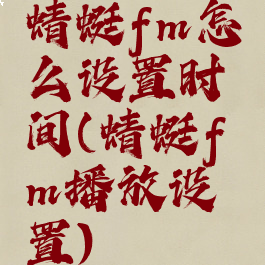 蜻蜓fm怎
么设置时
间(蜻蜓f
m播放设
置)